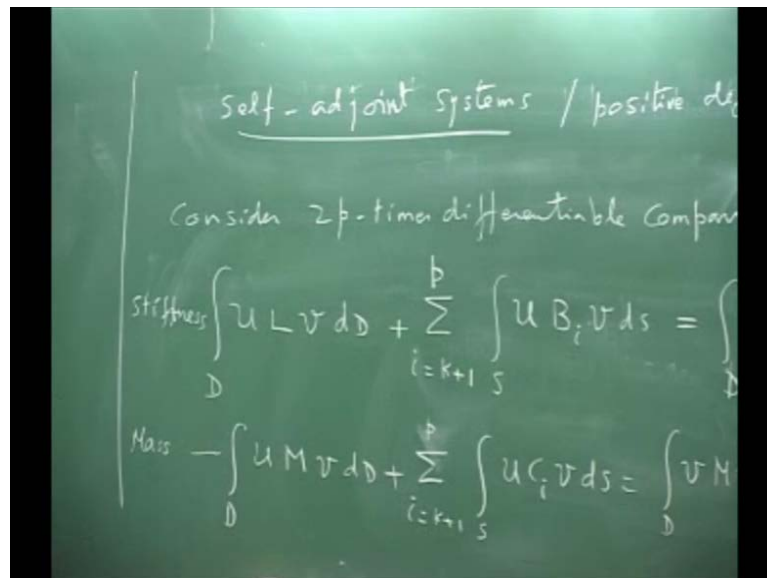 Self-adjoint systems / positive de
Consider 2p-times differentiable Compar
Stiffness ∫_D u L v dD + Σ_{i=k+1}^{p} ∫_S u B_i v ds = ∫_D
Mass – ∫_D u M v dD + Σ_{i=k+1}^{p} ∫_S u C_i v ds = ∫_D v M